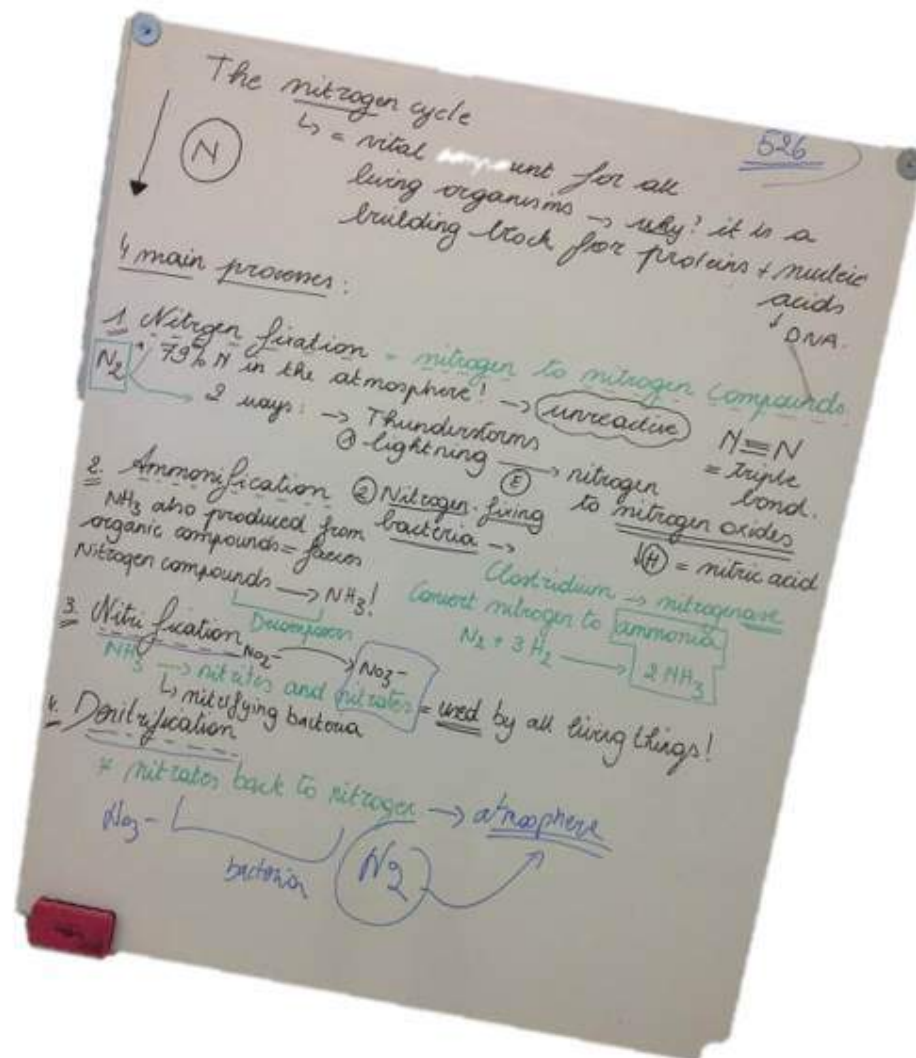 The nitrogen cycle
526
N
↳ = vital unt for all
living organisms → why? it is a
building block for proteins + nucleic
acids
↓ DNA.
4 main processes:
1 Nitrogen fixation = nitrogen to nitrogen compounds.
N2 79% N in the atmosphere! → unreactive N≡N
= triple
bond.
2 ways: → Thunderstorms
① lightning → nitrogen
Ⓔ to nitrogen oxides
↓Ⓗ = nitric acid
② Nitrogen-fixing
bacteria →
Clostridium → nitrogenase
Convert nitrogen to ammonia
N2 + 3H2 → 2NH3
2. Ammonification
NH3 also produced from
organic compounds = faeces
Nitrogen compounds → NH3!
Decomposers
3 Nitrification
NO2- → NO3-
NH3 → nitrites and nitrates = used by all living things!
↳ nitrifying bacteria
4. Denitrification
* nitrates back to nitrogen → atmosphere
NO3-
bacteria
N2